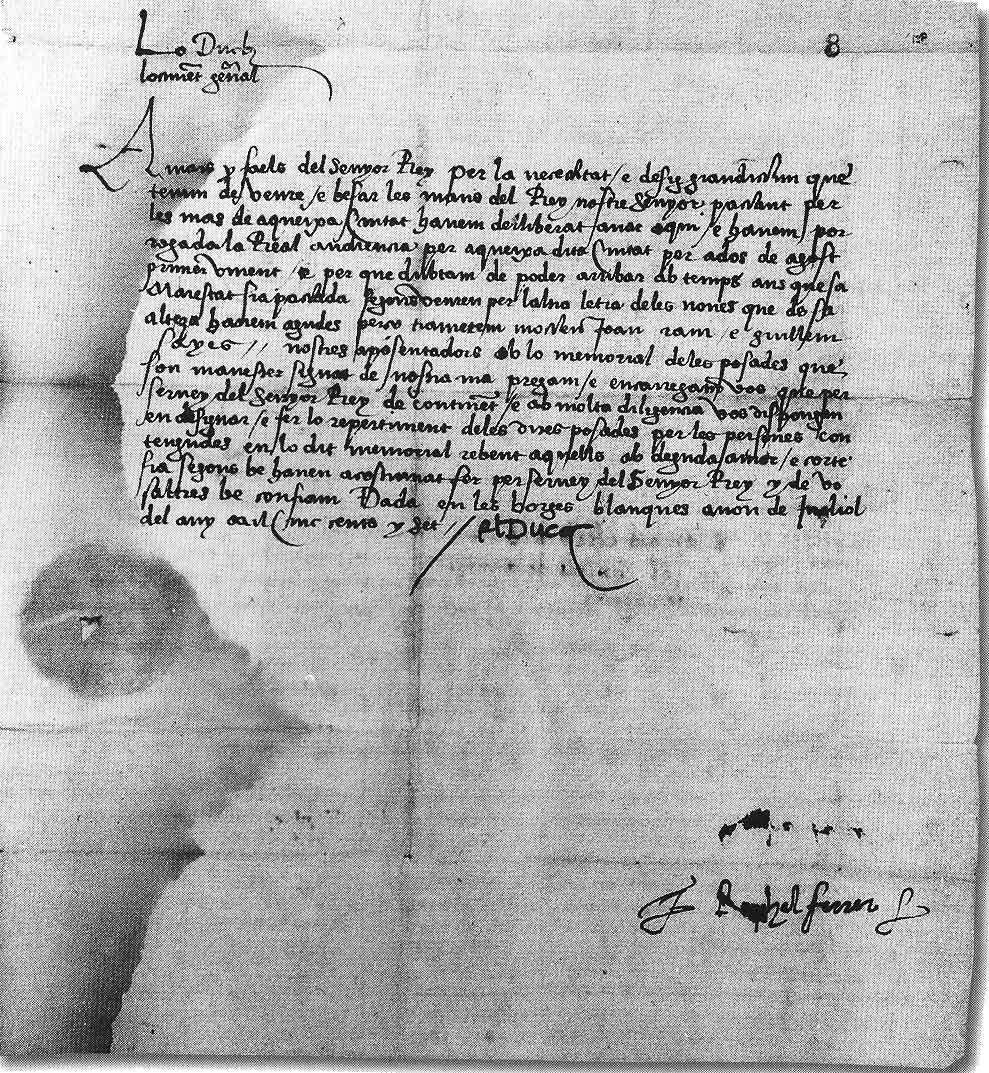 Lo Duch
loctinẽt gñal
8
Amats y faels del Senyor Rey per la necesitat / e desig grandissim que
tenim de venre / e besar les mans del Rey nostre Senyor partint per
les mas de aqueixa Ciutat havem delliberat anar aqui / e havem por
rogada la Real audiencia per aqueixa dita Ciutat per a dos de agost
primer vinent / e per que dubtam de poder arribar ab temps ans que sa
Majestat sia partida segons venien per la letra deles noves que de sa
alteza havem agudes pero trametem mossen Joan ram / e guillem
sayes // nostres aposentadors ab lo memorial deles posades que
son manester signat de nostra ma pregam / e encarregam vos que per
servey del Senyor Rey de continẽt / e ab molta diligencia vos dispongau
en designar / e fer lo repertiment deles dites posades per les persones con
tengudes en lo dit memorial rebent aquells ab deguda amor / e corte
sia segons be haveu acostumat fer per servey del Senyor Rey y de vo
saltres be confiam Dada en les borges blanques a non de Juliol
del any mil Cinc cents y set //
el Duc
Raphel ferrer